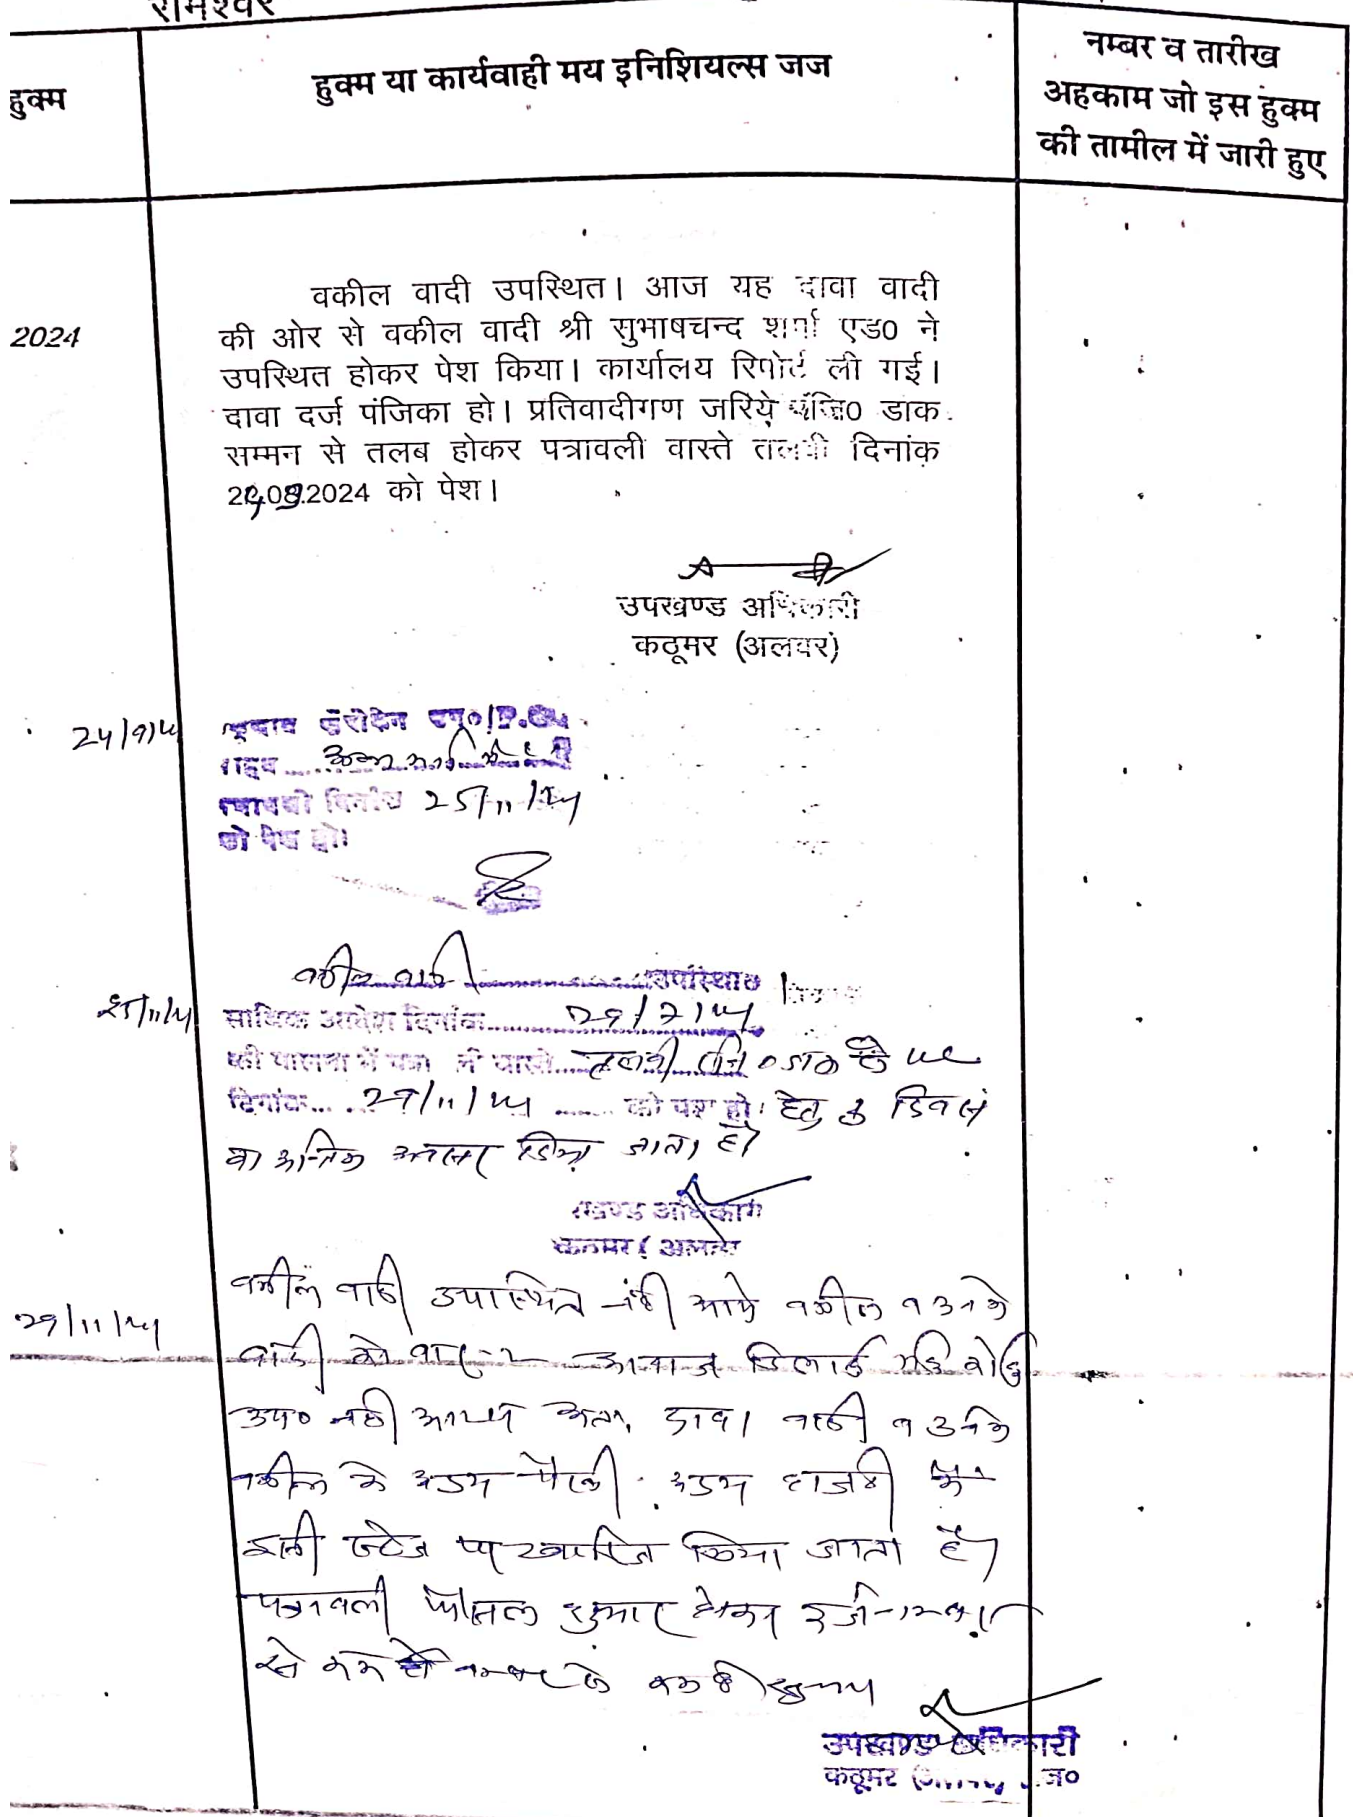 रामेश्वर
हुक्म
हुक्म या कार्यवाही मय इनिशियल्स जज
नम्बर व तारीख
अहकाम जो इस हुक्म
की तामील में जारी हुए
2024
वकील वादी उपस्थित। आज यह दावा वादी
की ओर से वकील वादी श्री सुभाषचन्द शर्मा एड0 ने
उपस्थित होकर पेश किया। कार्यालय रिपोर्ट ली गई।
दावा दर्ज पंजिका हो। प्रतिवादीगण जरिये पंजि0 डाक
सम्मन से तलब होकर पत्रावली वास्ते तलबी दिनांक
24.09.2024 को पेश।
उपखण्ड अधिकारी
कठूमर (अलवर)
24/9/24
दिनांक 25/11/24
को पेश हो।
25/11/24
वकील वादी उपस्थित
साबिक आदेश दिनांक
की पालना में पत्रा ली वास्ते तलबी
दिनांक 29/11/24 को पेश हो। हेतु 3 दिवस
का अन्तिम अवसर दिया जाता है।
खण्ड अधिकारी
कठूमर (अलवर
29/11/24
वकील वादी उपस्थित नहीं आये वकील व उनके
वादी को बार-2 आवाज दिलाई गई कोई
उप० नहीं आया अतः दावा वादी व उनके
वकील के अदम पैरवी अदम हाजरी में
इसी स्टेज पर खारिज किया जाता है।
पत्रावली फैसल शुमार होकर दर्ज नम्बर
से कम हो
उपखण्ड अधिकारी
कठूमर